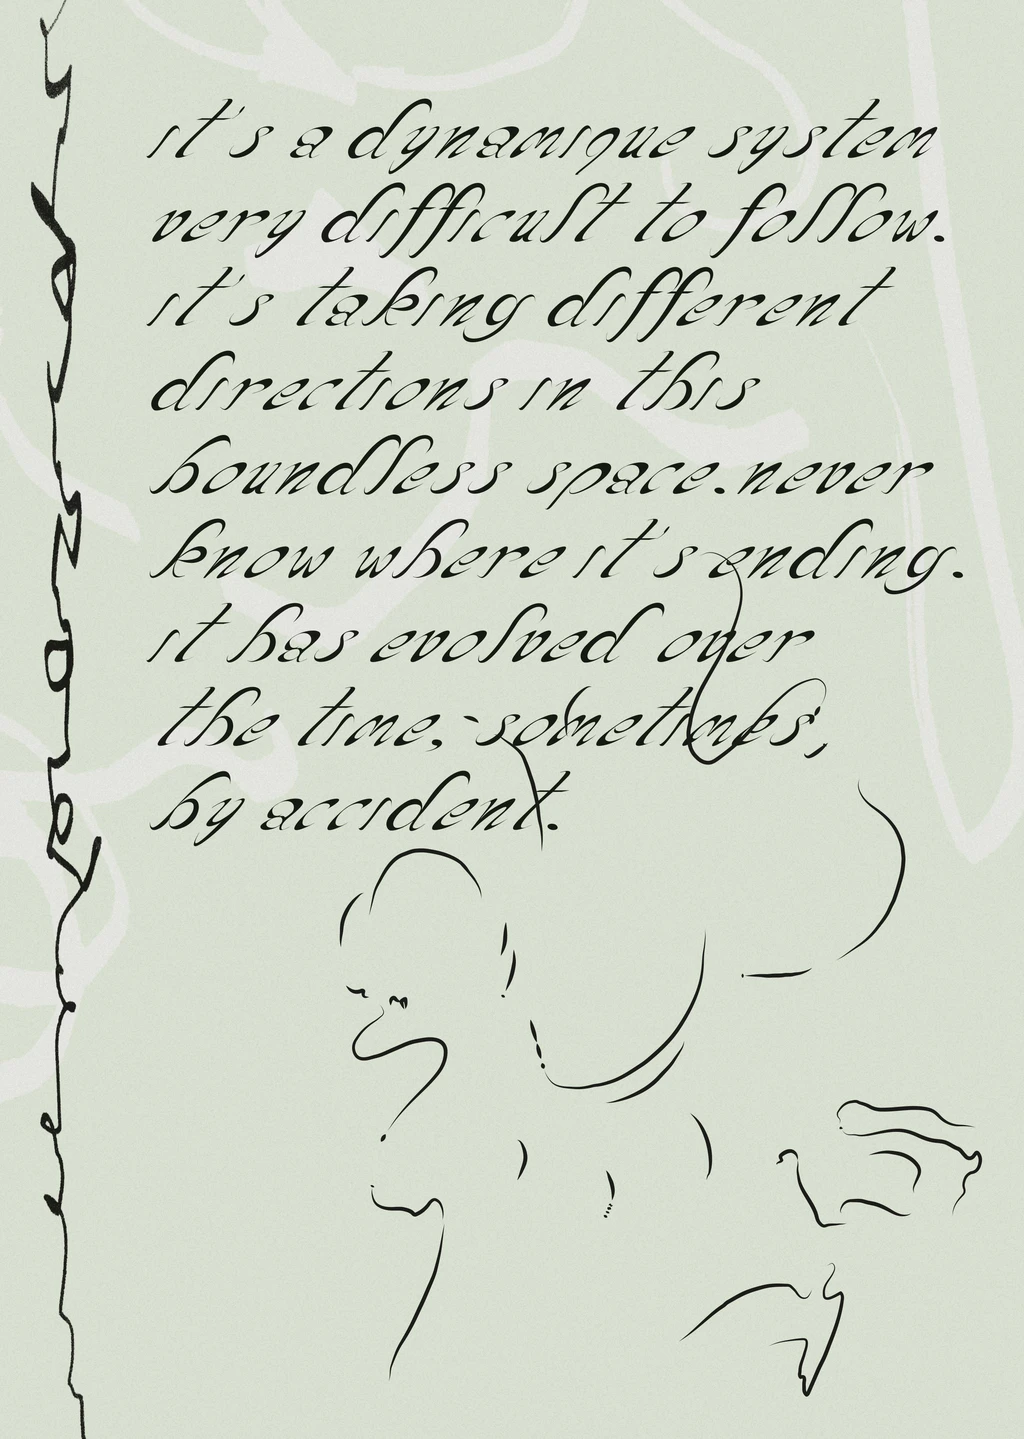 it's a dynamique system
very difficult to follow.
it's taking different
directions in this
boundless space.never
know where it's ending.
it has evolved over
the time, sometimes,
by accident.